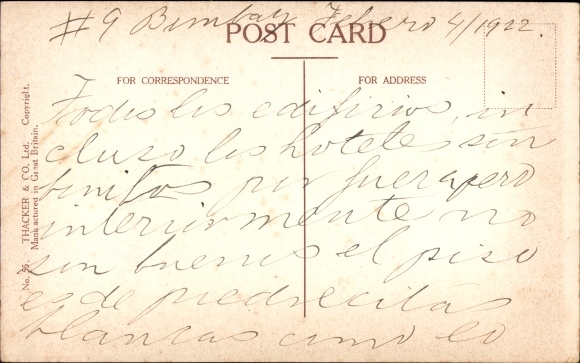 #9 Bombay Febero 4/1922.
POST CARD
FOR CORRESPONDENCE
FOR ADDRESS
Todos los edificios, in
cluso los hoteles son
bonitos por fuera pero
interiormente no
son buenos el piso
es de piedrecitas
blancas como lo
No. 55. THACKER & CO. Ltd. Copyright.
Manufactured in Great Britain.